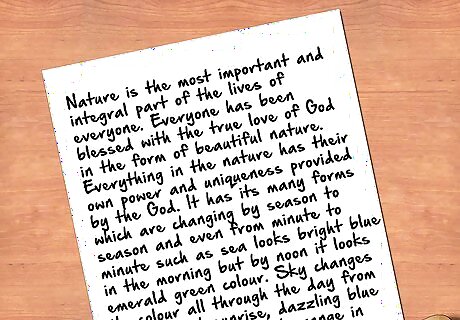 Nature is the most important and
integral part of the lives of
everyone. Everyone has been
blessed with the true love of God
in the form of beautiful nature.
Everything in the nature has their
own power and uniqueness provided
by the God. It has its many forms
which are changing by season to
season and even from minute to
minute such as sea looks bright blue
in the morning but by noon it looks
emerald green colour. Sky changes
colour all through the day from
sunrise, dazzling blue
in